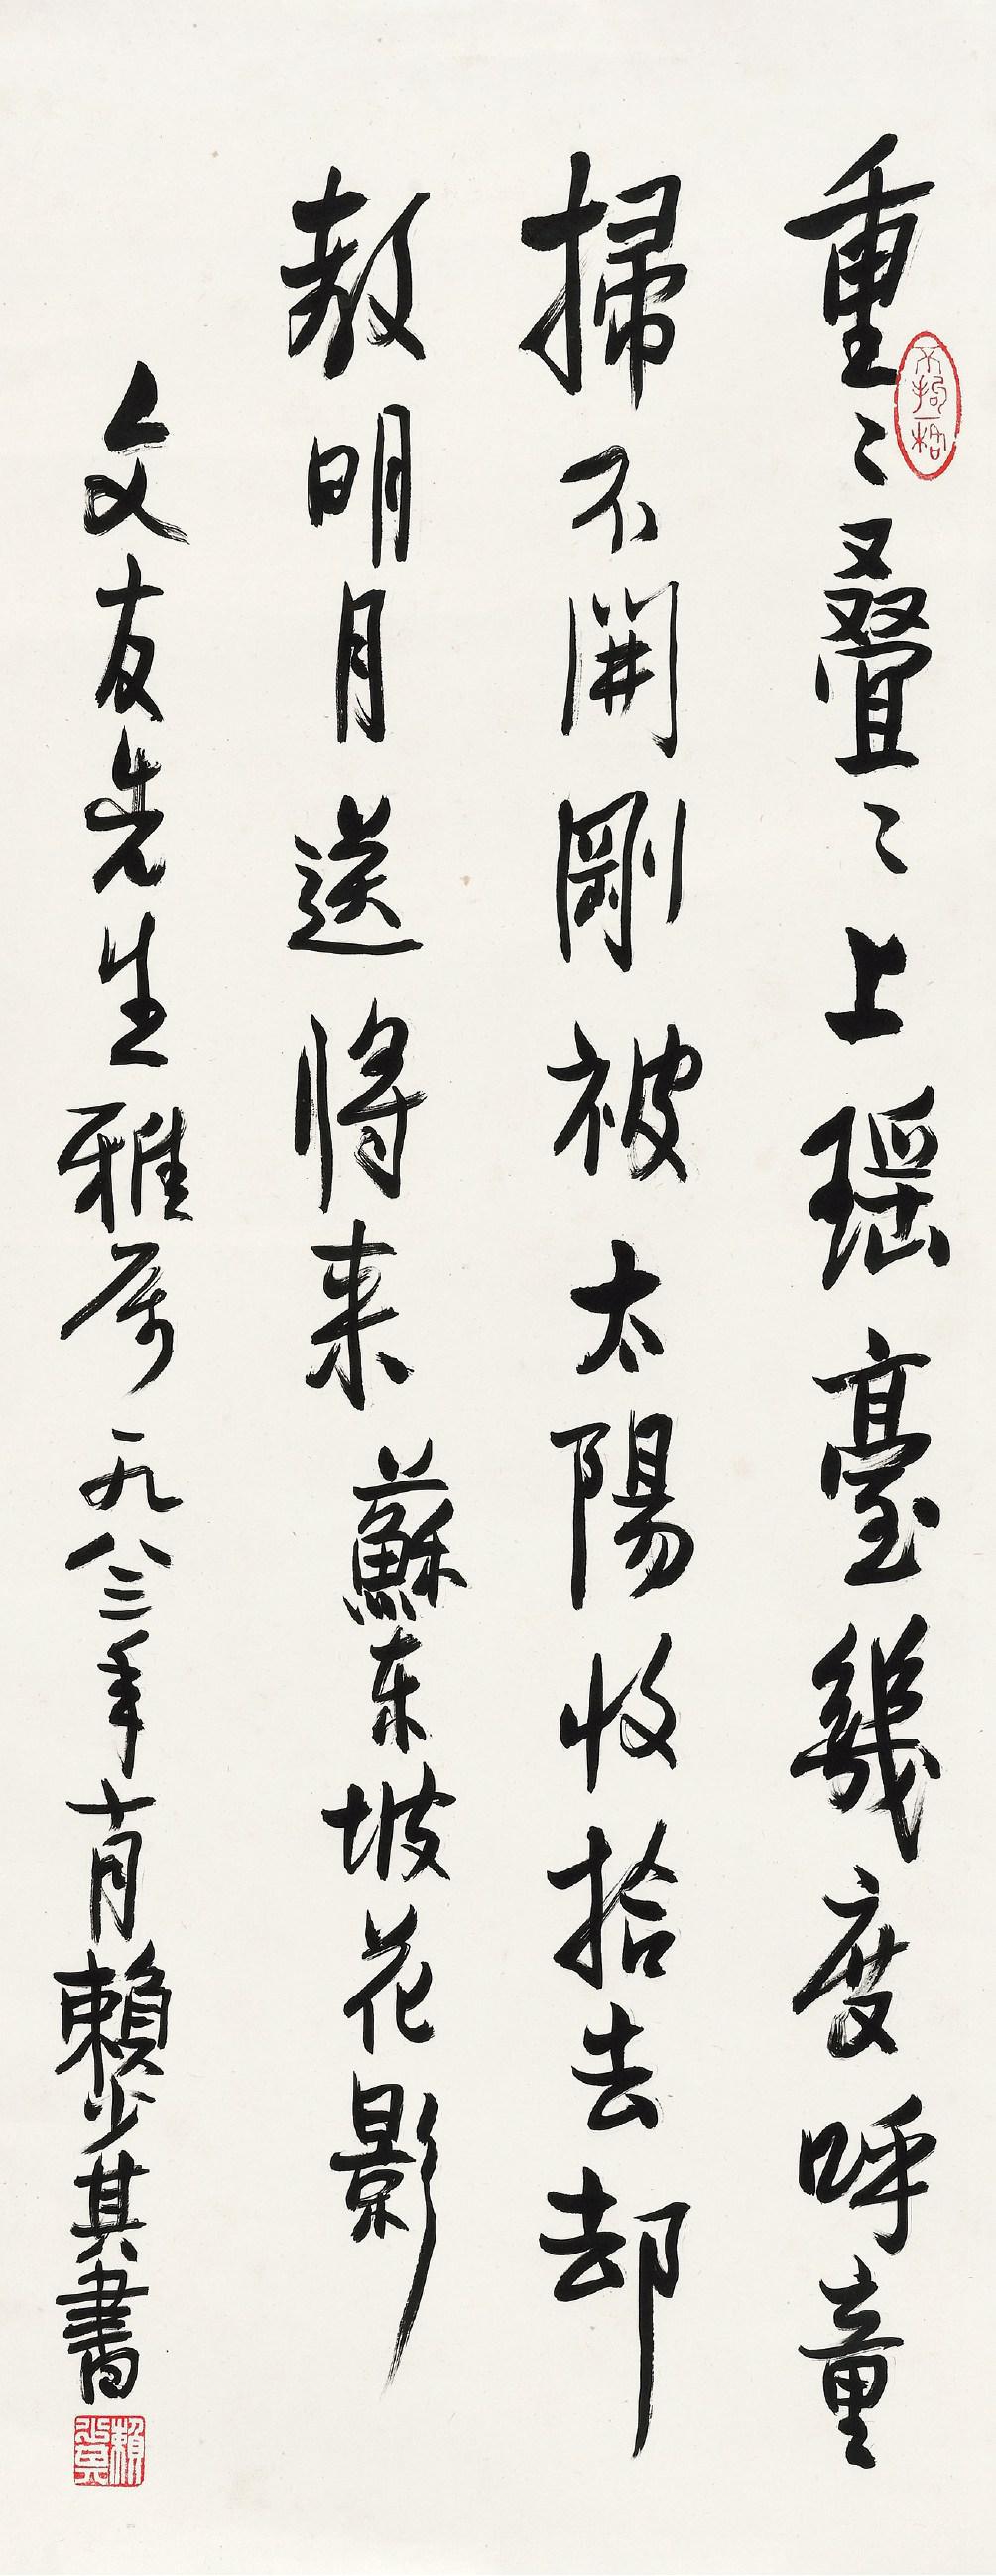 重〻叠〻上瑶臺幾度呼童
掃不開剛被太陽收拾去却
教明月送將来 蘇东坡花影
文友先生雅属 一九八三年十月賴少其書
不拘一格
賴少其